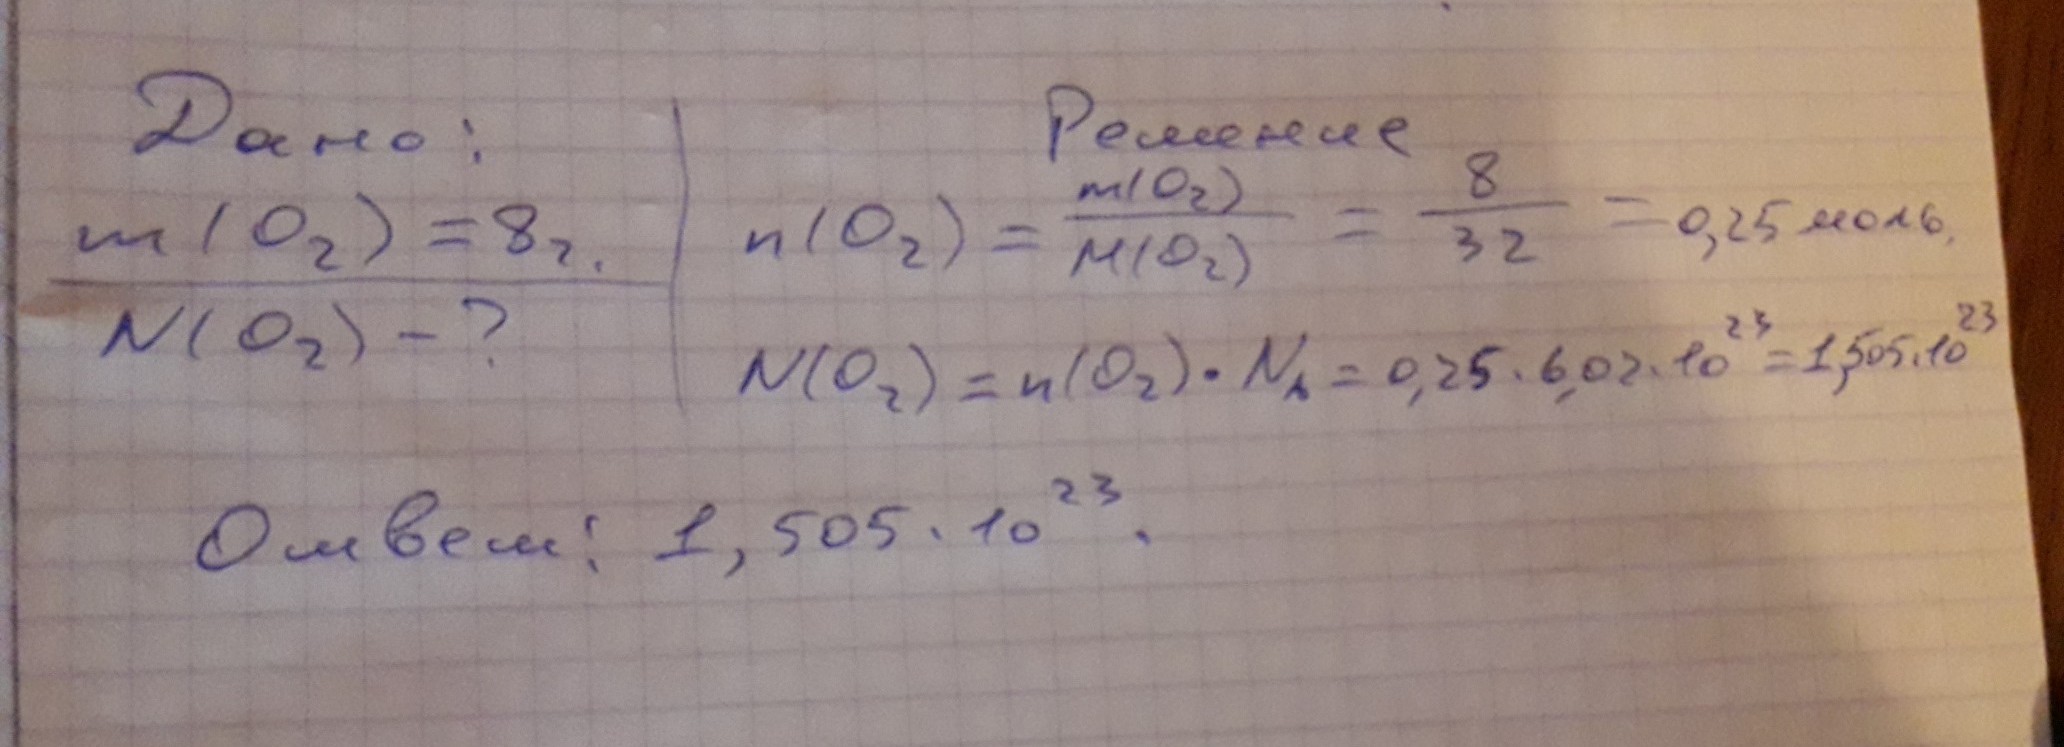 Дано:
m(O₂) = 8г.
N(O₂) - ?
Решение
n(O₂) = m(O₂)/M(O₂) = 8/32 = 0,25 моль.
N(O₂) = n(O₂) · Nₐ = 0,25 · 6,02 · 10²³ = 1,505 · 10²³
Ответ: 1,505 · 10²³.